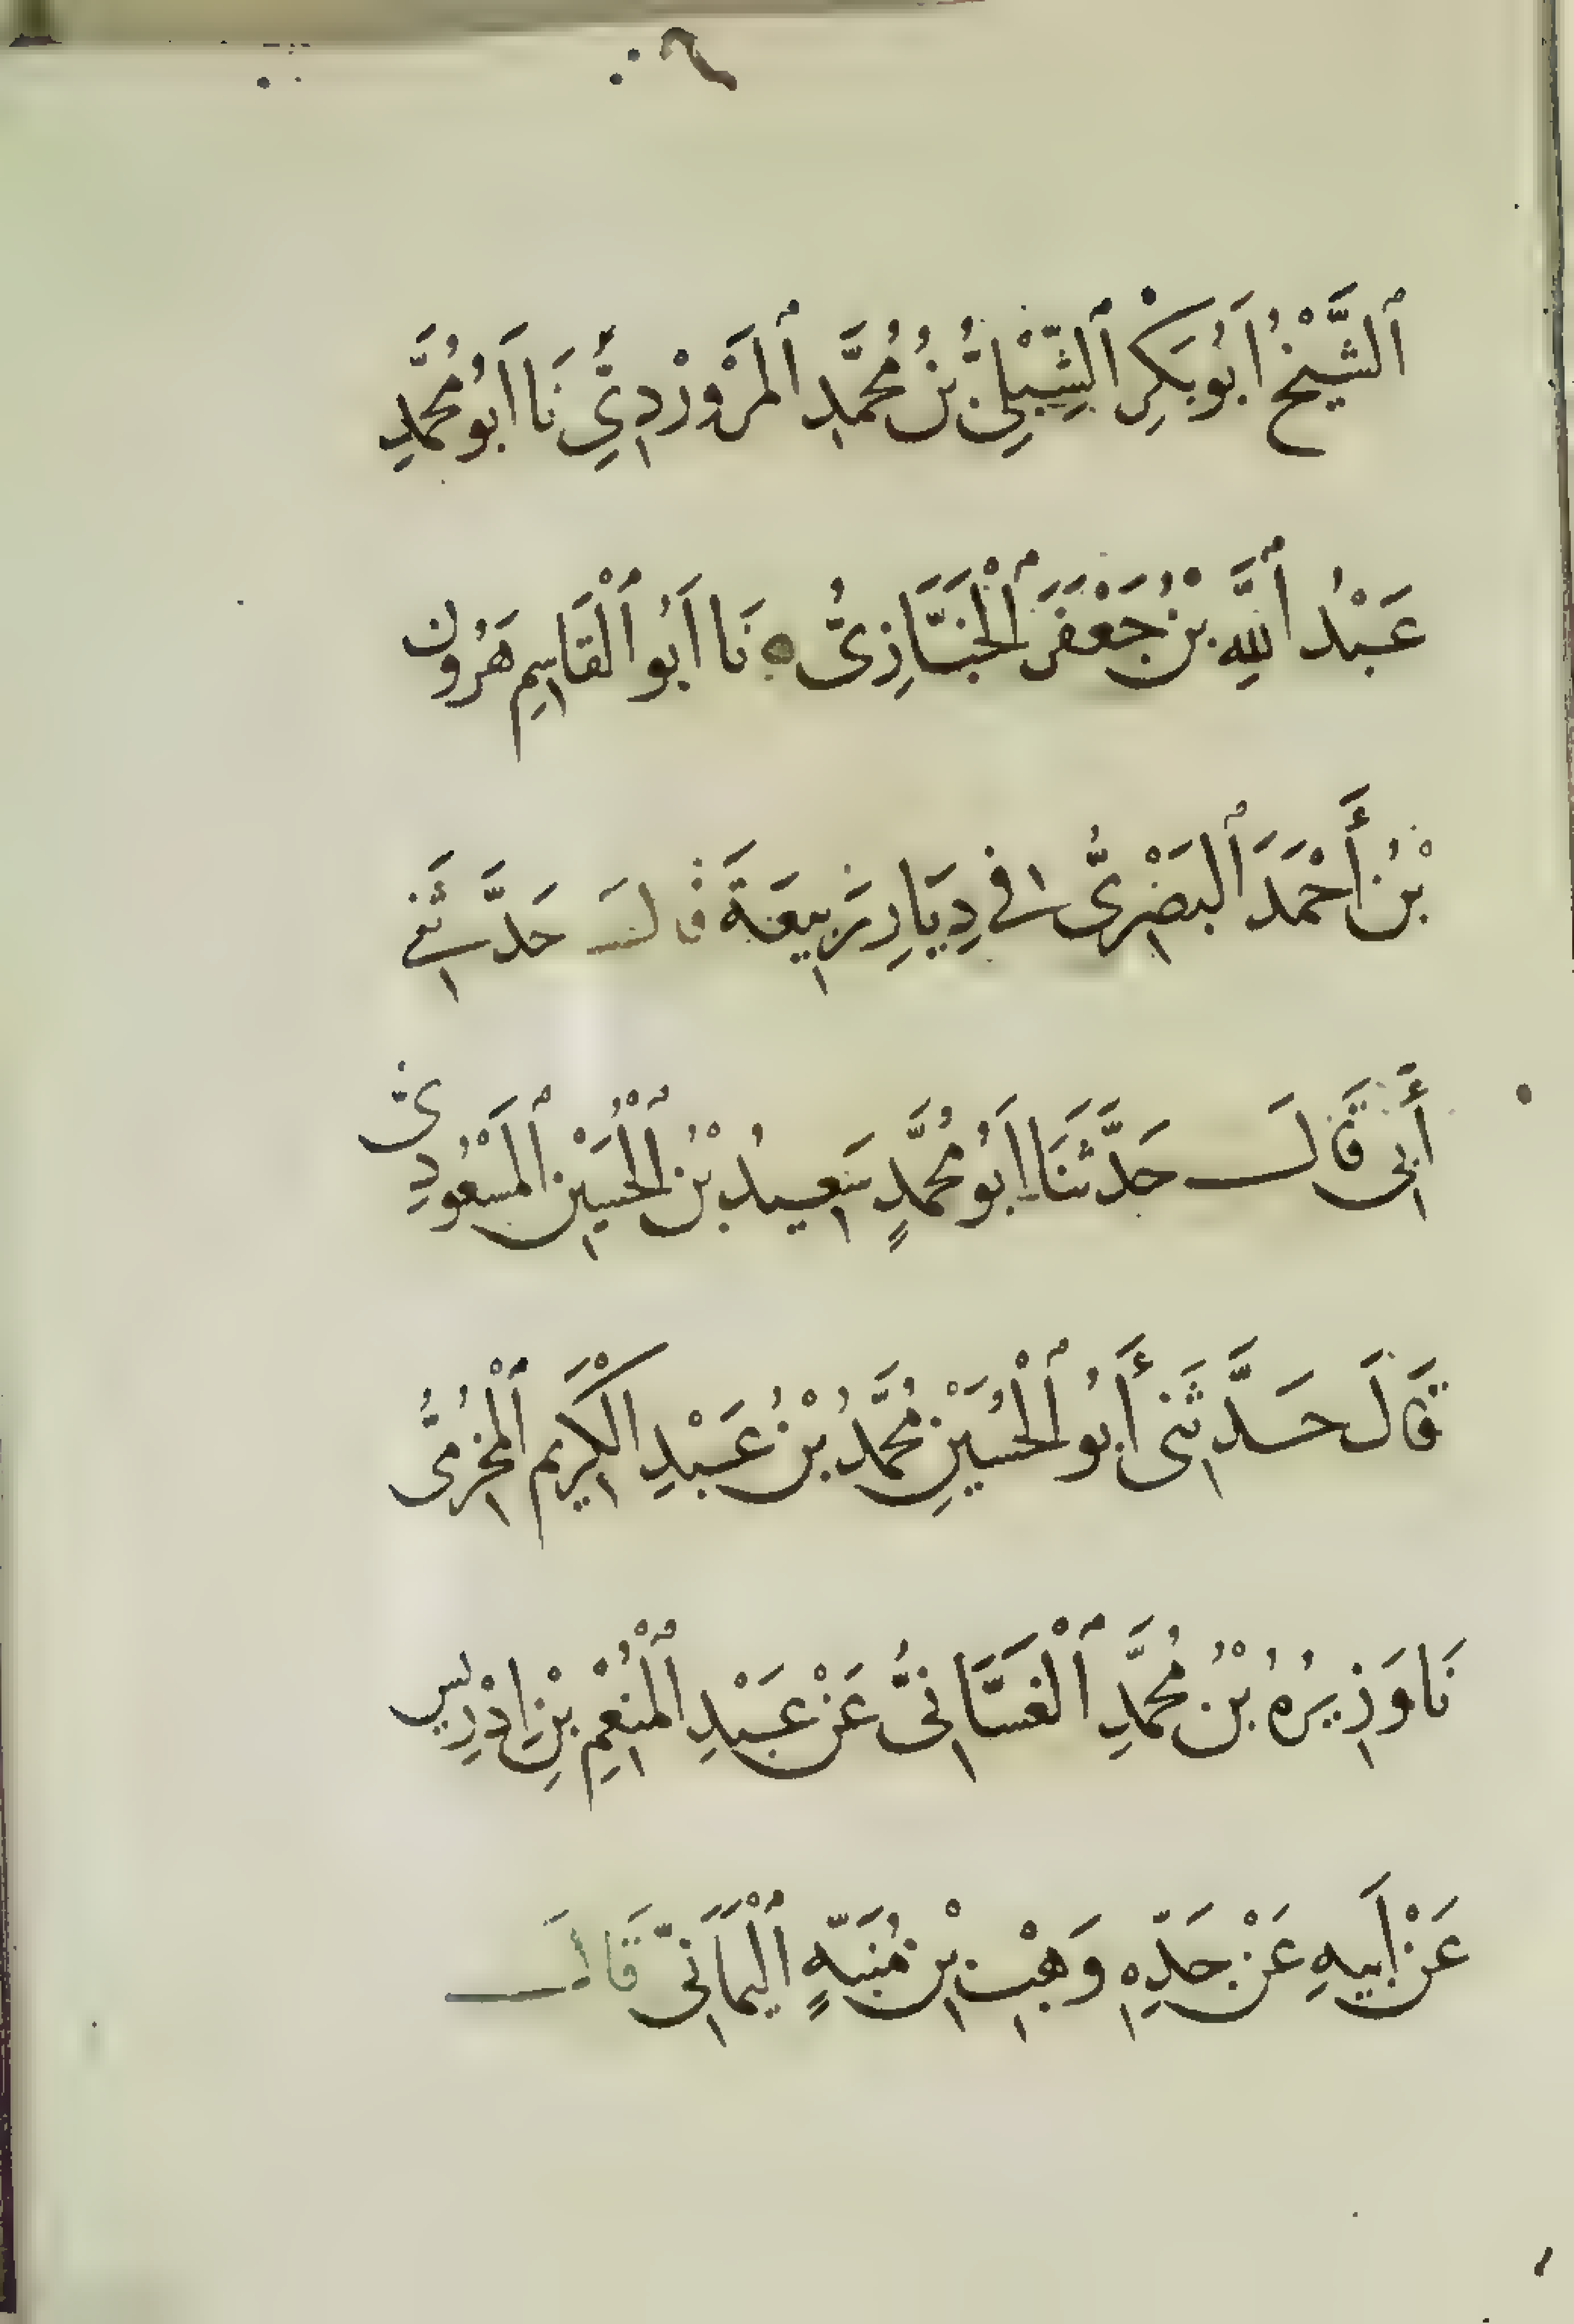 ٱلشَّيْخُ اَبُو بَكْرِ ٱلشِّبْلِىُّ بْنُ مُحَمَّدِ ٱلمَرْوَرْدِىُّ نَا اَبُو مُحَمَّدِ
عَبْدُ ٱللَّهِ بْنُ جَعْفَرَ ٱلْخَبَّازِىُّ ه نَا اَبُو ٱلْقَاسِمِ هَرُون
بْنُ أَحْمَدَ ٱلبَصْرِىُّ فِى دِيَارِ رَبِيعَةَ قَالَ حَدَّثَنِى
أَبِى قَالَ حَدَّثَنَا اَبُو مُحَمَّدٍ سَعِيدُ بْنُ ٱلْحُسَيْنِ ٱلمَسْعُودِىُّ
قَالَ حَدَّثَنِى أَبُو ٱلْحُسَيْنِ مُحَمَّدُ بْنُ عَبْدِ الْكَرِيمِ ٱلْمُخَرِّمُىُّ
نَا وَزِيرُهُ بْنُ مُحَمَّدِ ٱلْغَسَّانِىُّ عَنْ عَبْدِ ٱلْمُنْعِمِ بْنِ اِدْرِيس
عَنْ اَبِيهِ عَنْ جَدِّهِ وَهْبِ بْنِ مُنَبِّهٍ ٱلْيَمَانِىِّ قَالَ